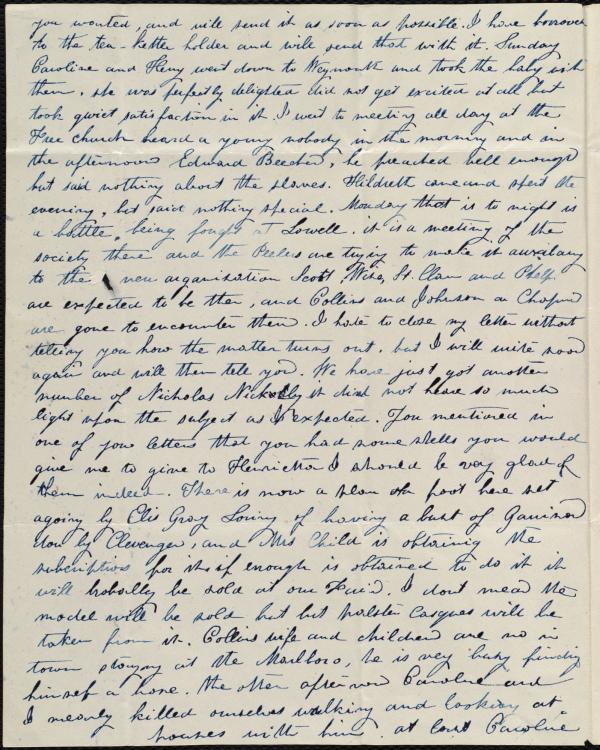 you wanted, and will send it as soon as possible. I have borrowed
to the tea-kettle holder and will send that with it. Sunday
Caroline and Henry went down to Weymouth and took the baby with
them. she was perfectly delighted did not get excited at all but
took quiet satisfaction in it. I went to meeting all day at the
Free church heard a young nobody in the morning and in
the afternoon Edward Beecher, he preached well enough
but said nothing about the slaves. Hildreth came and spent the
evening, but said nothing special. Monday that is to night is
a battle being fought at Lowell. it is a meeting of the
society there and the are trying to make it auxiliary
to the new organization Scott, Wise, St. Clair and Phelps
are expected to be there, and Collins and Johnson or Chapin
are gone to encounter them. I hate to close my letter without
telling you how the matter turns out, but I will write soon
again and will then tell you. We have just got another
number of Nicholas Nickolby it did not throw so much
light upon the subject as I expected. You mentioned in
one of your letters that you had some shells you would
give me to give to Henrietta I should be very glad of
them indeed. There is now a plan on foot here set
agoing by Elis Gray Loring of having a bust of Garrison
done by Clevenger, and Mrs Child is obtaining the
subscriptions for it. if enough is obtained to do it it
will probably be sold at our Fair. I dont mean the
model will be sold but but plaster casques will be
taken from it. Collins wife and children are no in
town staying at the Marlboro, he is very busy finding
himself a home. the other afternoon Caroline and
I nearly killed ourselves walking and looking at
houses with him. at last Caroline